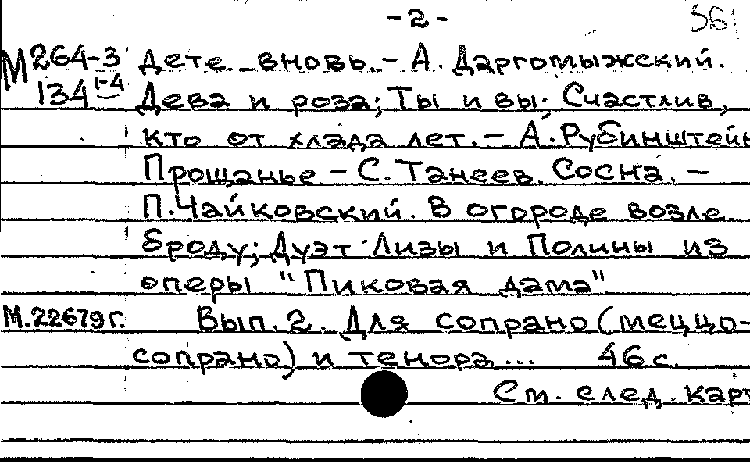 -2-
361
М 264-3 дете вновь. - А. Даргомыжский.
134 1-4 Дева и роза; Ты и вы; Счастлив,
кто от хлада лет. - А. Рубинштейн
Прощанье - С. Танеев. Сосна. -
П. Чайковский. В огороде возле
броду; Дуэт Лизы и Полины из
оперы "Пиковая дама"
М.22679г. Вып. 2. Для сопрано (меццо-
сопрано) и тенора... 46 с.
См. след. карт